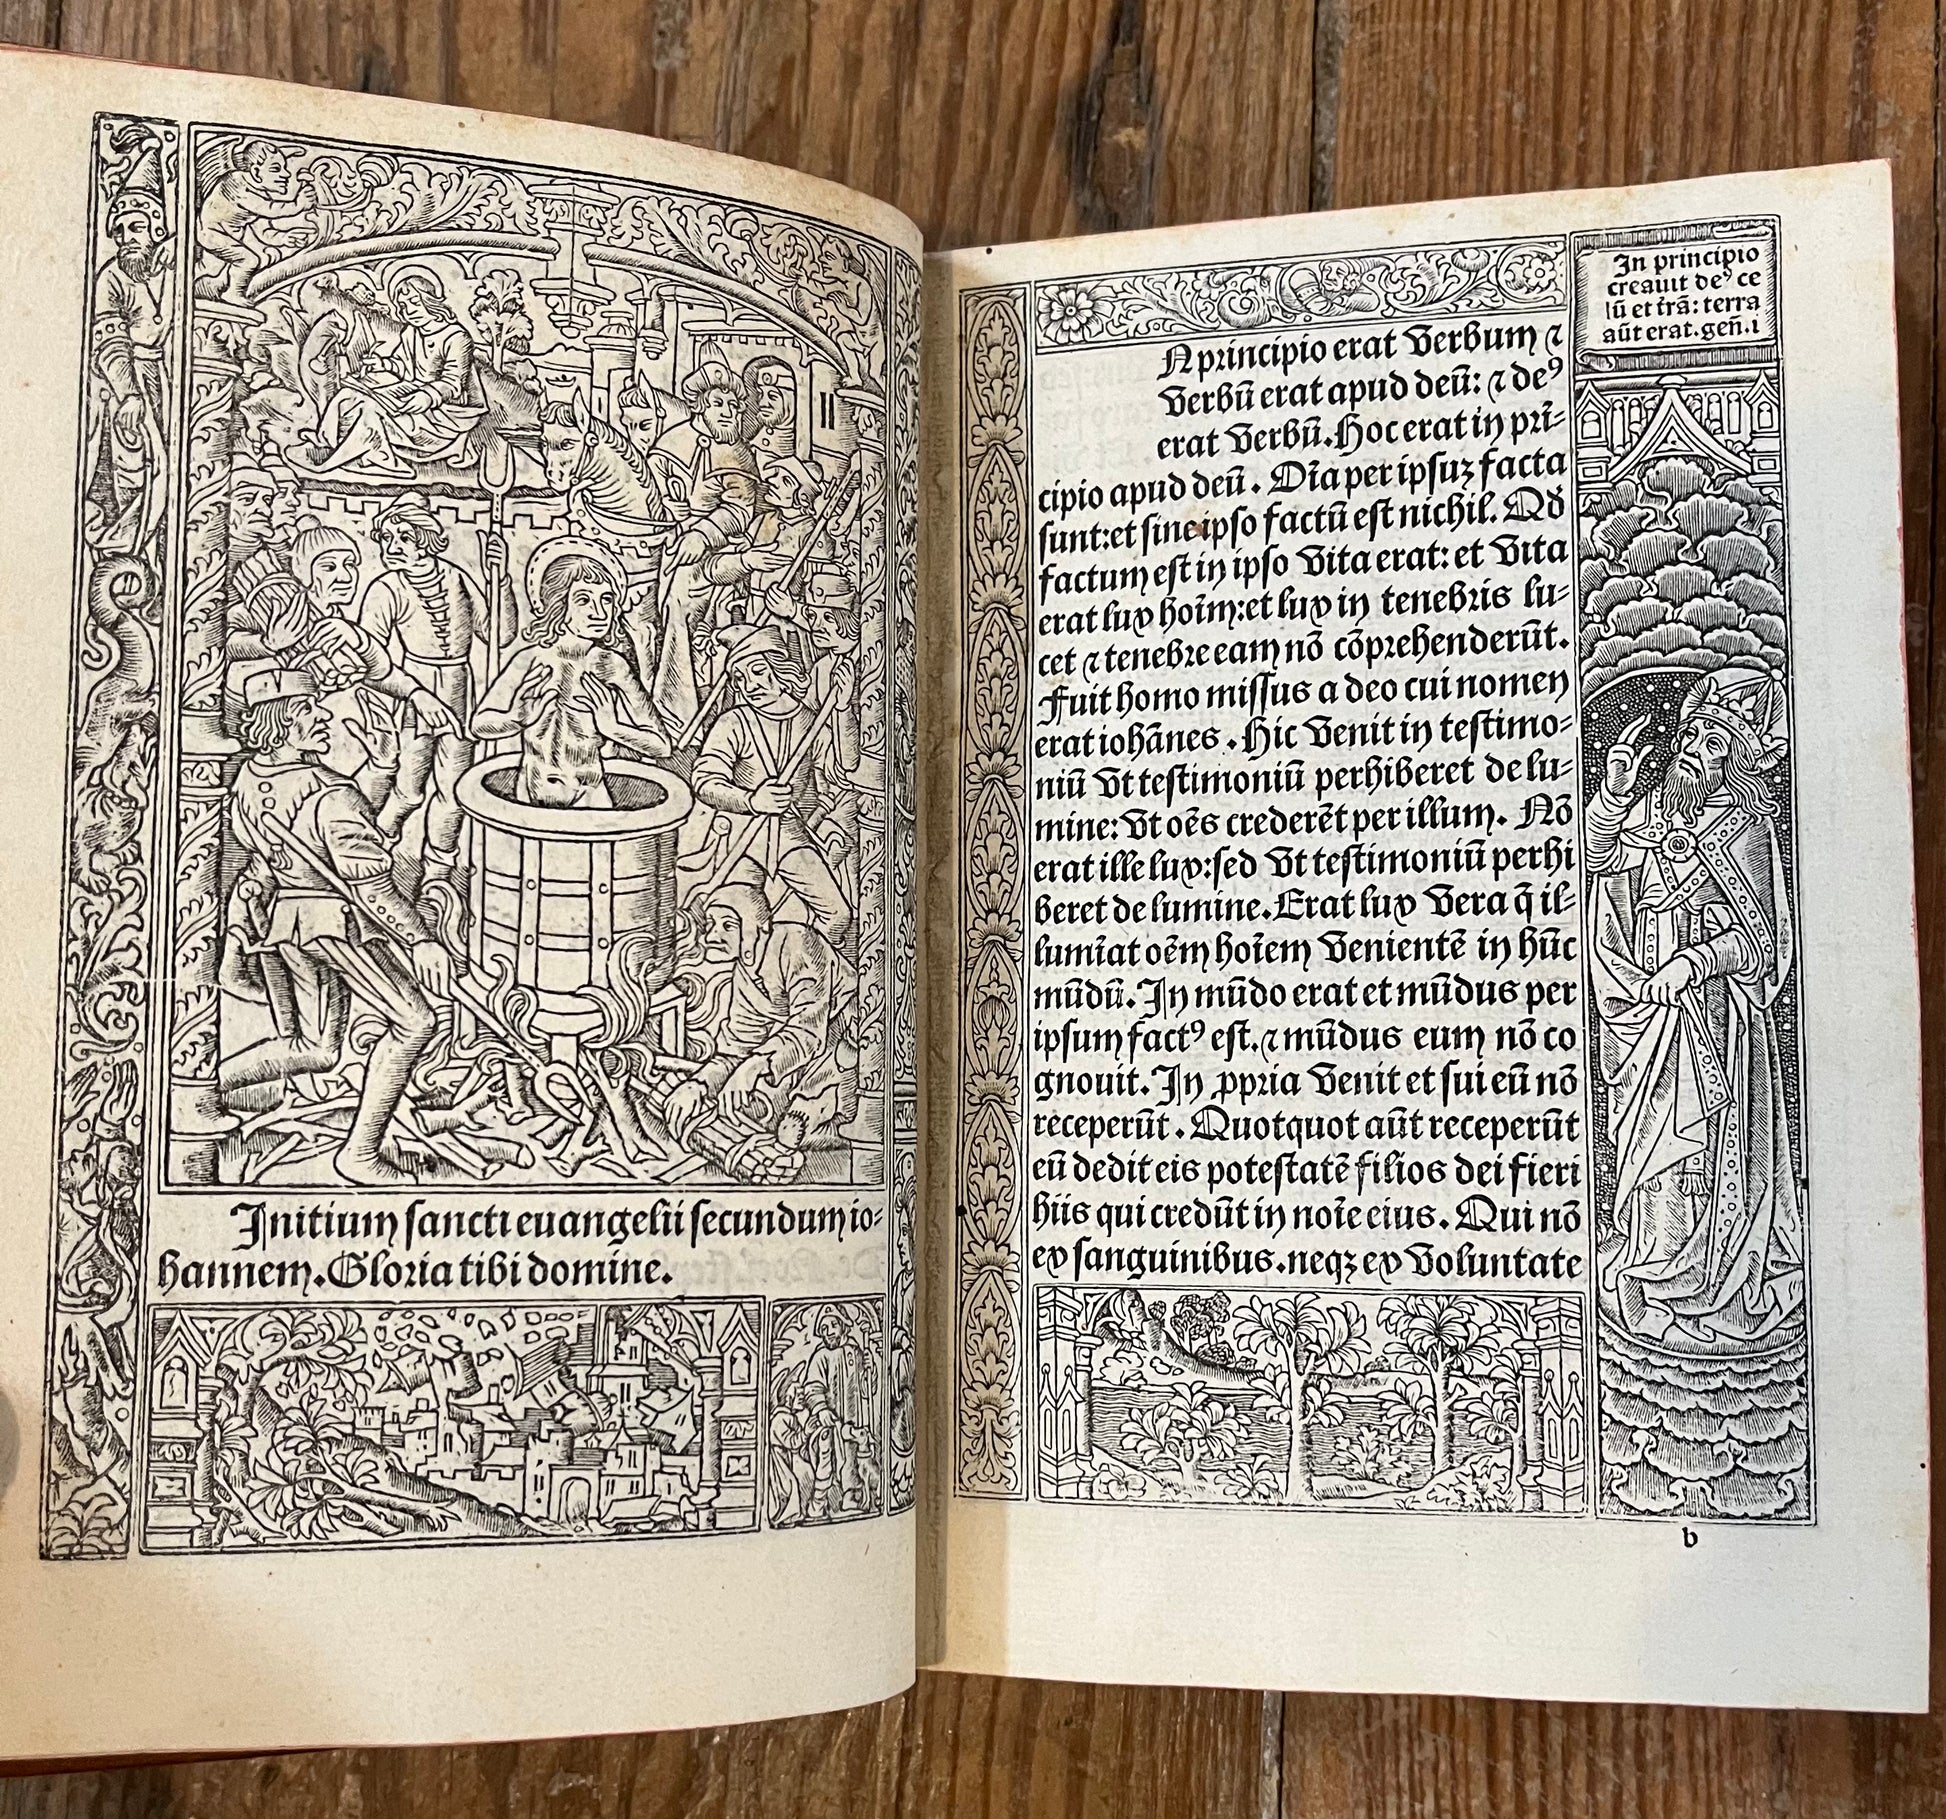 Initium sancti euangelii secundum io⸗
hannem. Gloria tibi domine.
In principio
creauit deꝰ ce
lū et trā: terra
aūt erat. gen̄. i
N principio erat verbum ⁊
verbū erat apud deū: ⁊ deꝰ
erat verbū. Hoc erat in prī⸗
cipio apud deū. Oīa per ipsuꝫ facta
sunt: et sine ipso factū est nichil. Qd̓
factum est in ipso vita erat: et vita
erat lux hoīm: et lux in tenebris lu⸗
cet ⁊ tenebre eam nō cōprehenderūt.
Fuit homo missus a deo cui nomen
erat iohānes. Hic venit in testimo⸗
niū vt testimoniū perhiberet de lu⸗
mine: vt oēs crederēt per illum. Nō
erat ille lux: sed vt testimoniū perhi
beret de lumine. Erat lux vera q̄ il⸗
lumīat oēm hoīem venientē in hūc
mūdū. In mūdo erat et mūdus per
ipsum factꝰ est. ⁊ mūdus eum nō co
gnouit. In ꝓpria venit et sui eū nō
receperūt. Quotquot aūt receperūt
eū dedit eis potestatē filios dei fieri
hiis qui credūt in noīe eius. Qui nō
ex sanguinibus. neqꝫ ex voluntate
b